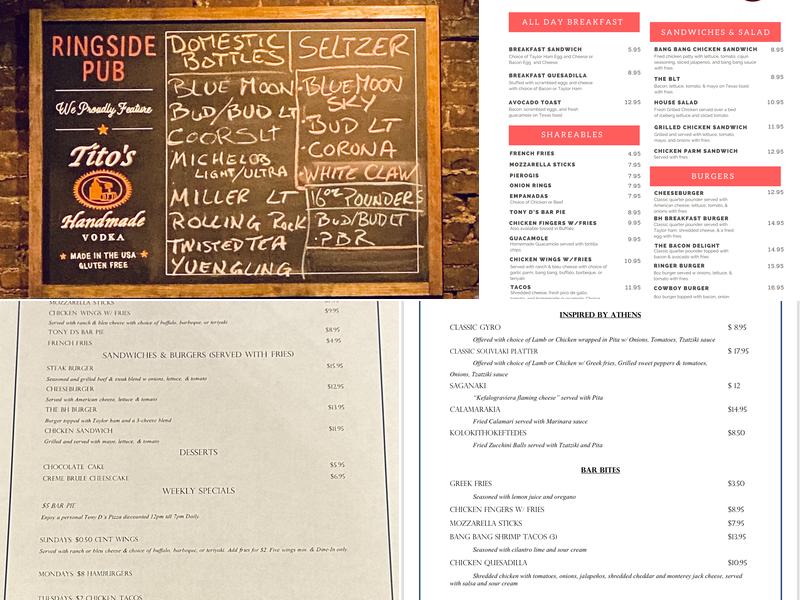 RINGSIDE
PUB
We Proudly Feature
Tito's
Handmade
VODKA
MADE IN THE USA
GLUTEN FREE
DOMESTIC
BOTTLES
BLUE MOON
BUD/BUD LT
COORS LT
MICHELOB
LIGHT/ULTRA
MILLER LT
ROLLING Rock
TWISTED TEA
YUENGLING
SELTZER
·BLUE MOON
SKY
·BUD LT
·CORONA
·WHITE CLAW
16oz POUNDERS
BUD/BUD LT
·PBR
ALL DAY BREAKFAST
BREAKFAST SANDWICH 5.95
Choice of Taylor Ham Egg and Cheese or
Bacon Egg, and Cheese
BREAKFAST QUESADILLA 8.95
Stuffed with scrambled eggs and cheese
with choice of Bacon or Taylor Ham
AVOCADO TOAST 12.95
Bacon, scrambled eggs, and fresh
guacamole on Texas toast
SHAREABLES
FRENCH FRIES 4.95
MOZZARELLA STICKS 7.95
PIEROGIS 7.95
ONION RINGS 7.95
EMPANADAS 7.95
Choice of Chicken or Beef
TONY D'S BAR PIE 8.95
CHICKEN FINGERS W/FRIES 9.95
Also available tossed in Buffalo
GUACAMOLE 9.95
Homemade Guacamole served with tortilla
chips
CHICKEN WINGS W/FRIES 10.95
Served with ranch & bleu cheese with choice of
garlic parm, bang bang, buffalo, barbeque, or
teriyaki
TACOS 11.95
Shredded cheese, fresh pico de gallo,
SANDWICHES & SALAD
BANG BANG CHICKEN SANDWICH 8.95
Fried chicken patty with lettuce, tomato, cajun
seasoning, sliced jalapenos, and bang bang sauce
with fries
THE BLT 8.95
Bacon, lettuce, tomato, & mayo on Texas toast
with fries
HOUSE SALAD 10.95
Grilled Chicken served over a bed
of iceberg lettuce and sliced tomato
GRILLED CHICKEN SANDWICH 11.95
Grilled and served with lettuce, tomato
mayo, and onions with fries
CHICKEN PARM SANDWICH 12.95
Served with fries
BURGERS
CHEESEBURGER 12.95
Classic quarter pounder served with
American cheese, lettuce, tomato, &
onions with fries
BH BREAKFAST BURGER 14.95
Classic quarter pounder served with
Taylor ham, shredded cheese, & a fried
egg with fries
THE BACON DELIGHT 14.95
Classic quarter pounder topped with
bacon & avocado with fries
RINGER BURGER 15.95
8oz burger served w onions, lettuce, &
tomato with fries
COWBOY BURGER 16.95
8oz burger topped with bacon, onion
MOZZARELLA STICKS
CHICKEN WINGS W/ FRIES $9.95
Served with ranch & bleu cheese with choice of buffalo, barbeque, or teriyaki
TONY D'S BAR PIE $8.95
FRENCH FRIES $4.95
SANDWICHES & BURGERS (SERVED WITH FRIES)
STEAK BURGER $15.95
Seasoned and grilled beef & steak blend w onions, lettuce, & tomato
CHEESEBURGER $12.95
Served with American cheese, lettuce & tomato
THE BH BURGER $13.95
Burger topped with Taylor ham and a 3-cheese blend
CHICKEN SANDWICH $11.95
Grilled and served with mayo, lettuce, & tomato
DESSERTS
CHOCOLATE CAKE $5.95
CREME BRULE CHEESECAKE $6.95
WEEKLY SPECIALS
$5 BAR PIE
Enjoy a personal Tony D's Pizza discounted 12pm till 7pm Daily.
SUNDAYS $0.50 CENT WINGS
Served with ranch or bleu cheese & choice of buffalo, barbeque, or teriyaki. Add fries for $2. Five wings min. & Dine-In only.
MONDAYS $8 HAMBURGERS
TUESDAYS $2 CHICKEN TACOS
INSPIRED BY ATHENS
CLASSIC GYRO $ 8.95
Offered with choice of Lamb or Chicken wrapped in Pita w/ Onions, Tomatoes, Tzatziki sauce
CLASSIC SOUVLAKI PLATTER $ 17.95
Offered with choice of Lamb or Chicken w/ Greek fries, Grilled sweet peppers & tomatoes,
Onions, Tzatziki sauce
SAGANAKI $ 12
"Kefalograviera flaming cheese" served with Pita
CALAMARAKIA $14.95
Fried Calamari served with Marinara sauce
KOLOKITHOKEFTEDES $8.50
Fried Zucchini Balls served with Tzatziki and Pita
BAR BITES
GREEK FRIES $3.50
Seasoned with lemon juice and oregano
CHICKEN FINGERS W/ FRIES $8.95
MOZZARELLA STICKS $7.95
BANG BANG SHRIMP TACOS (3) $13.95
Seasoned with cilantro lime and sour cream
CHICKEN QUESADILLA $10.95
Shredded chicken with tomatoes, onions, jalapeños, shredded cheddar and monterey jack cheese, served
with salsa and sour cream